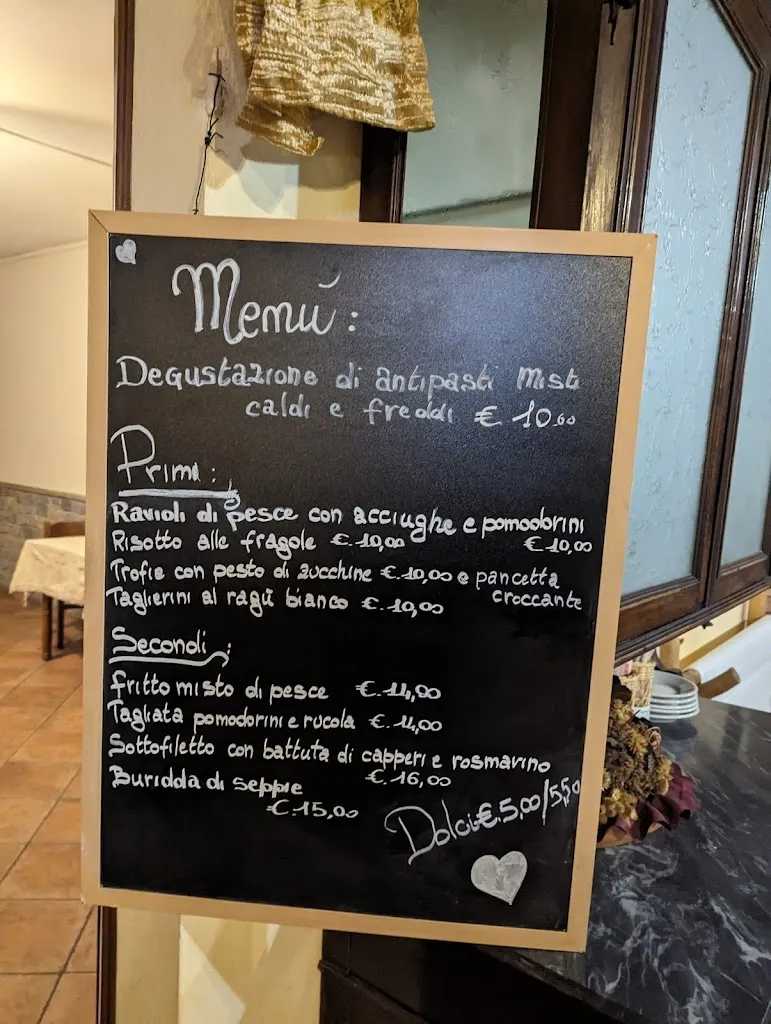 Menù:
Degustazione di antipasti Misti
caldi e freddi € 10.00
Primi:
Ravioli di pesce con acciughe e pomodorini
€ 10,00
Risotto alle fragole €.10,00
Trofie con pesto di zucchine €.10,00 e pancetta
croccante
Taglierini al ragù bianco €.10,00
Secondi:
fritto misto di pesce €.14,00
Tagliata pomodorini e rucola €.14,00
Sottofiletto con battuta di capperi e rosmarino
€.16,00
Buridda di seppie
€.15,00
Dolci €.5,00/5,50